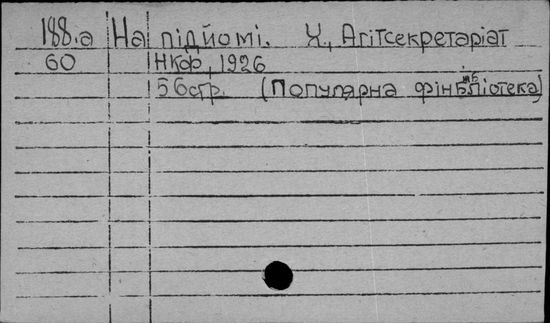 188.а На підйомі. Х., Агітсекретаріат
60 НКФ, 1926
56стр. (Популярна фінбібліотека)